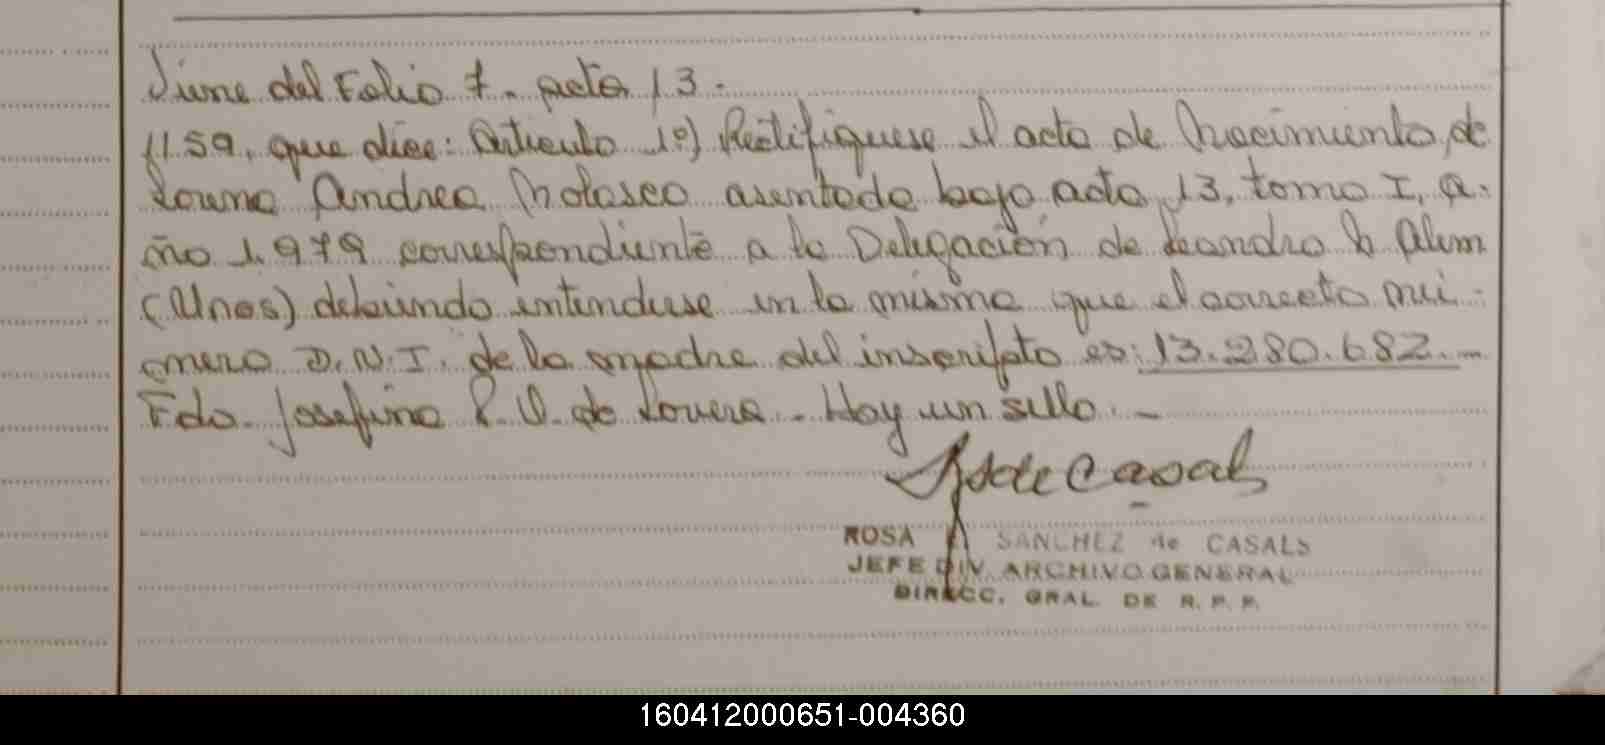 Viene del Folio 7. acta 13.
1159, que dice: Artículo 1º) Rectifíquese el acta de Nacimiento, de
Andrea Nolasco asentada bajo acta 13, tomo I, a-
ño 1.979 correspondiente a la Delegación de Leandro N Alem
(Unos) debiendo entenderse en la misma que el correcto nú-
mero D.N.I. de la madre del inscripto es: 13.280.682.-
Fdo. Josefina de Lovera - Hay un sello. -
ROSA SANCHEZ de CASALS
JEFE DIV. ARCHIVO GENERAL
DIRECC. GRAL. DE R. P. P.
160412000651-004360